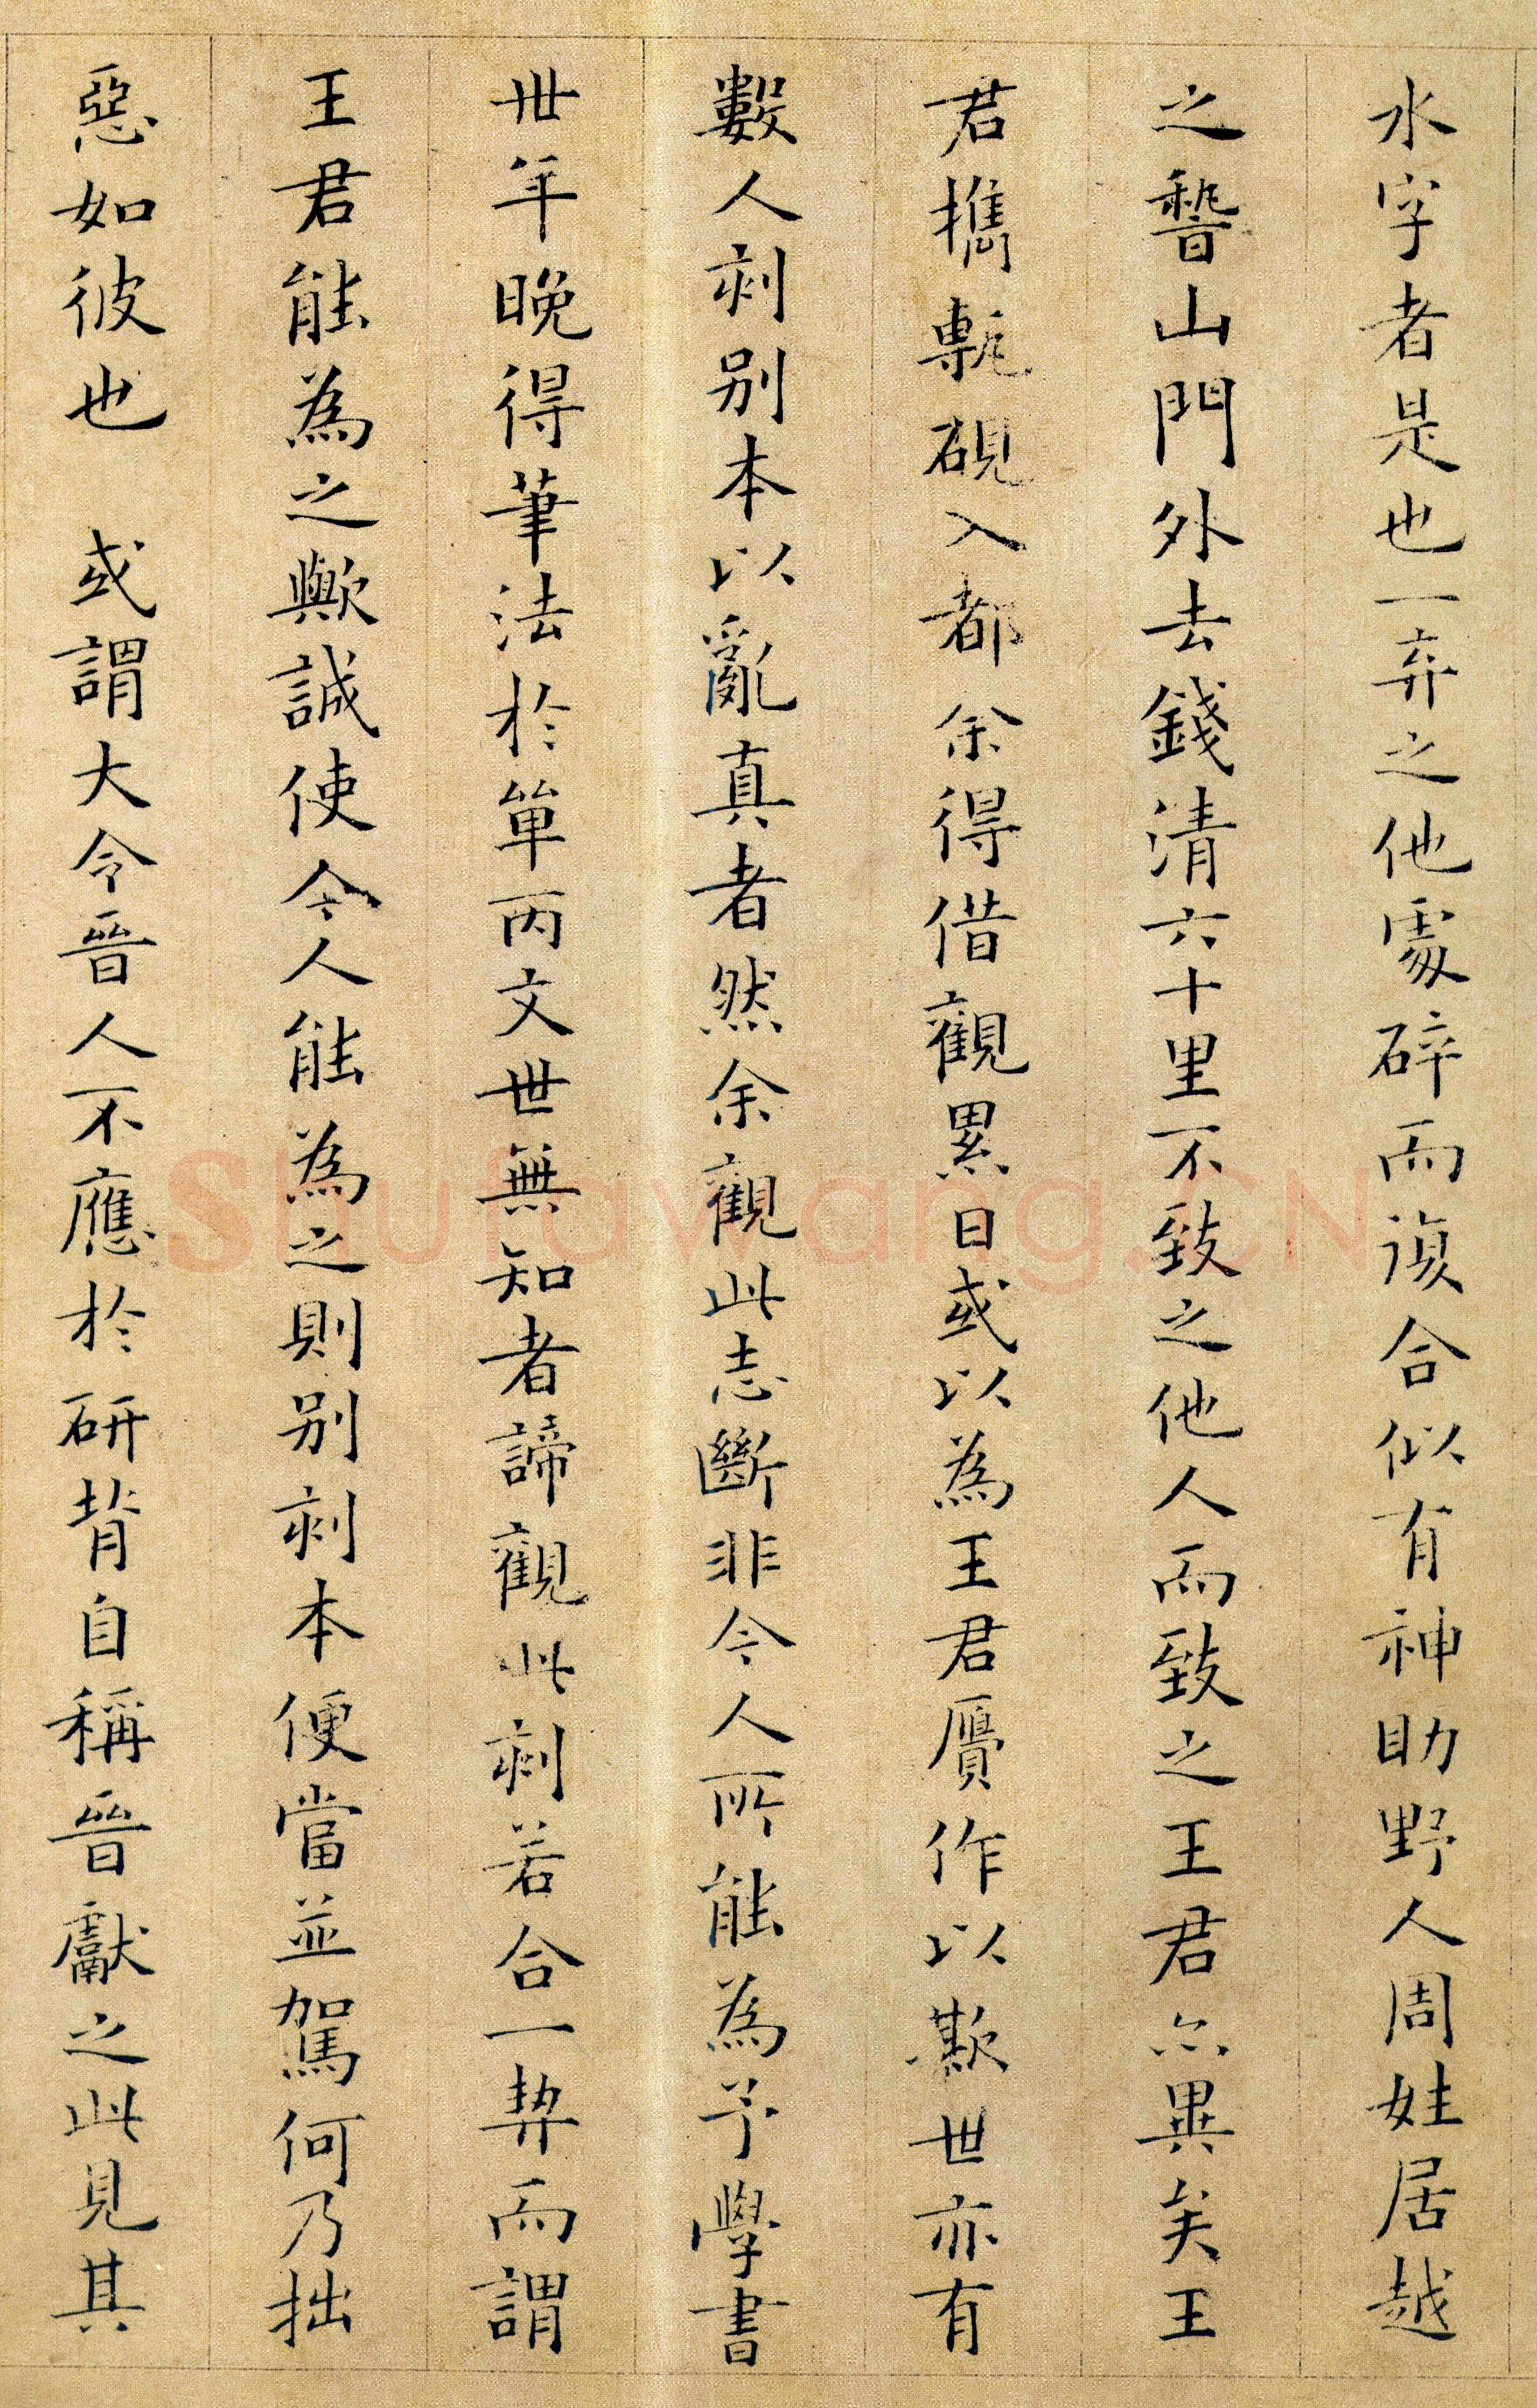 水字者是也一弃之他處碎而復合似有神助野人周娃居越
之稽山門外去錢清六十里不致之他人而致之王君亦異矣王
君攜甎硯入都余得借觀累日或以為王君贋作以欺世亦有
數人刻別本以亂真者然余觀此志斷非今人所能為予學書
卅年晚得筆法於單丙文世無知者諦觀此刻若合一契而謂
王君能為之歟誠使今人能為之則別刻本便當並駕何乃拙
惡如彼也 或謂大令晉人不應於研背自稱晉獻之此見其
shufawang.CN